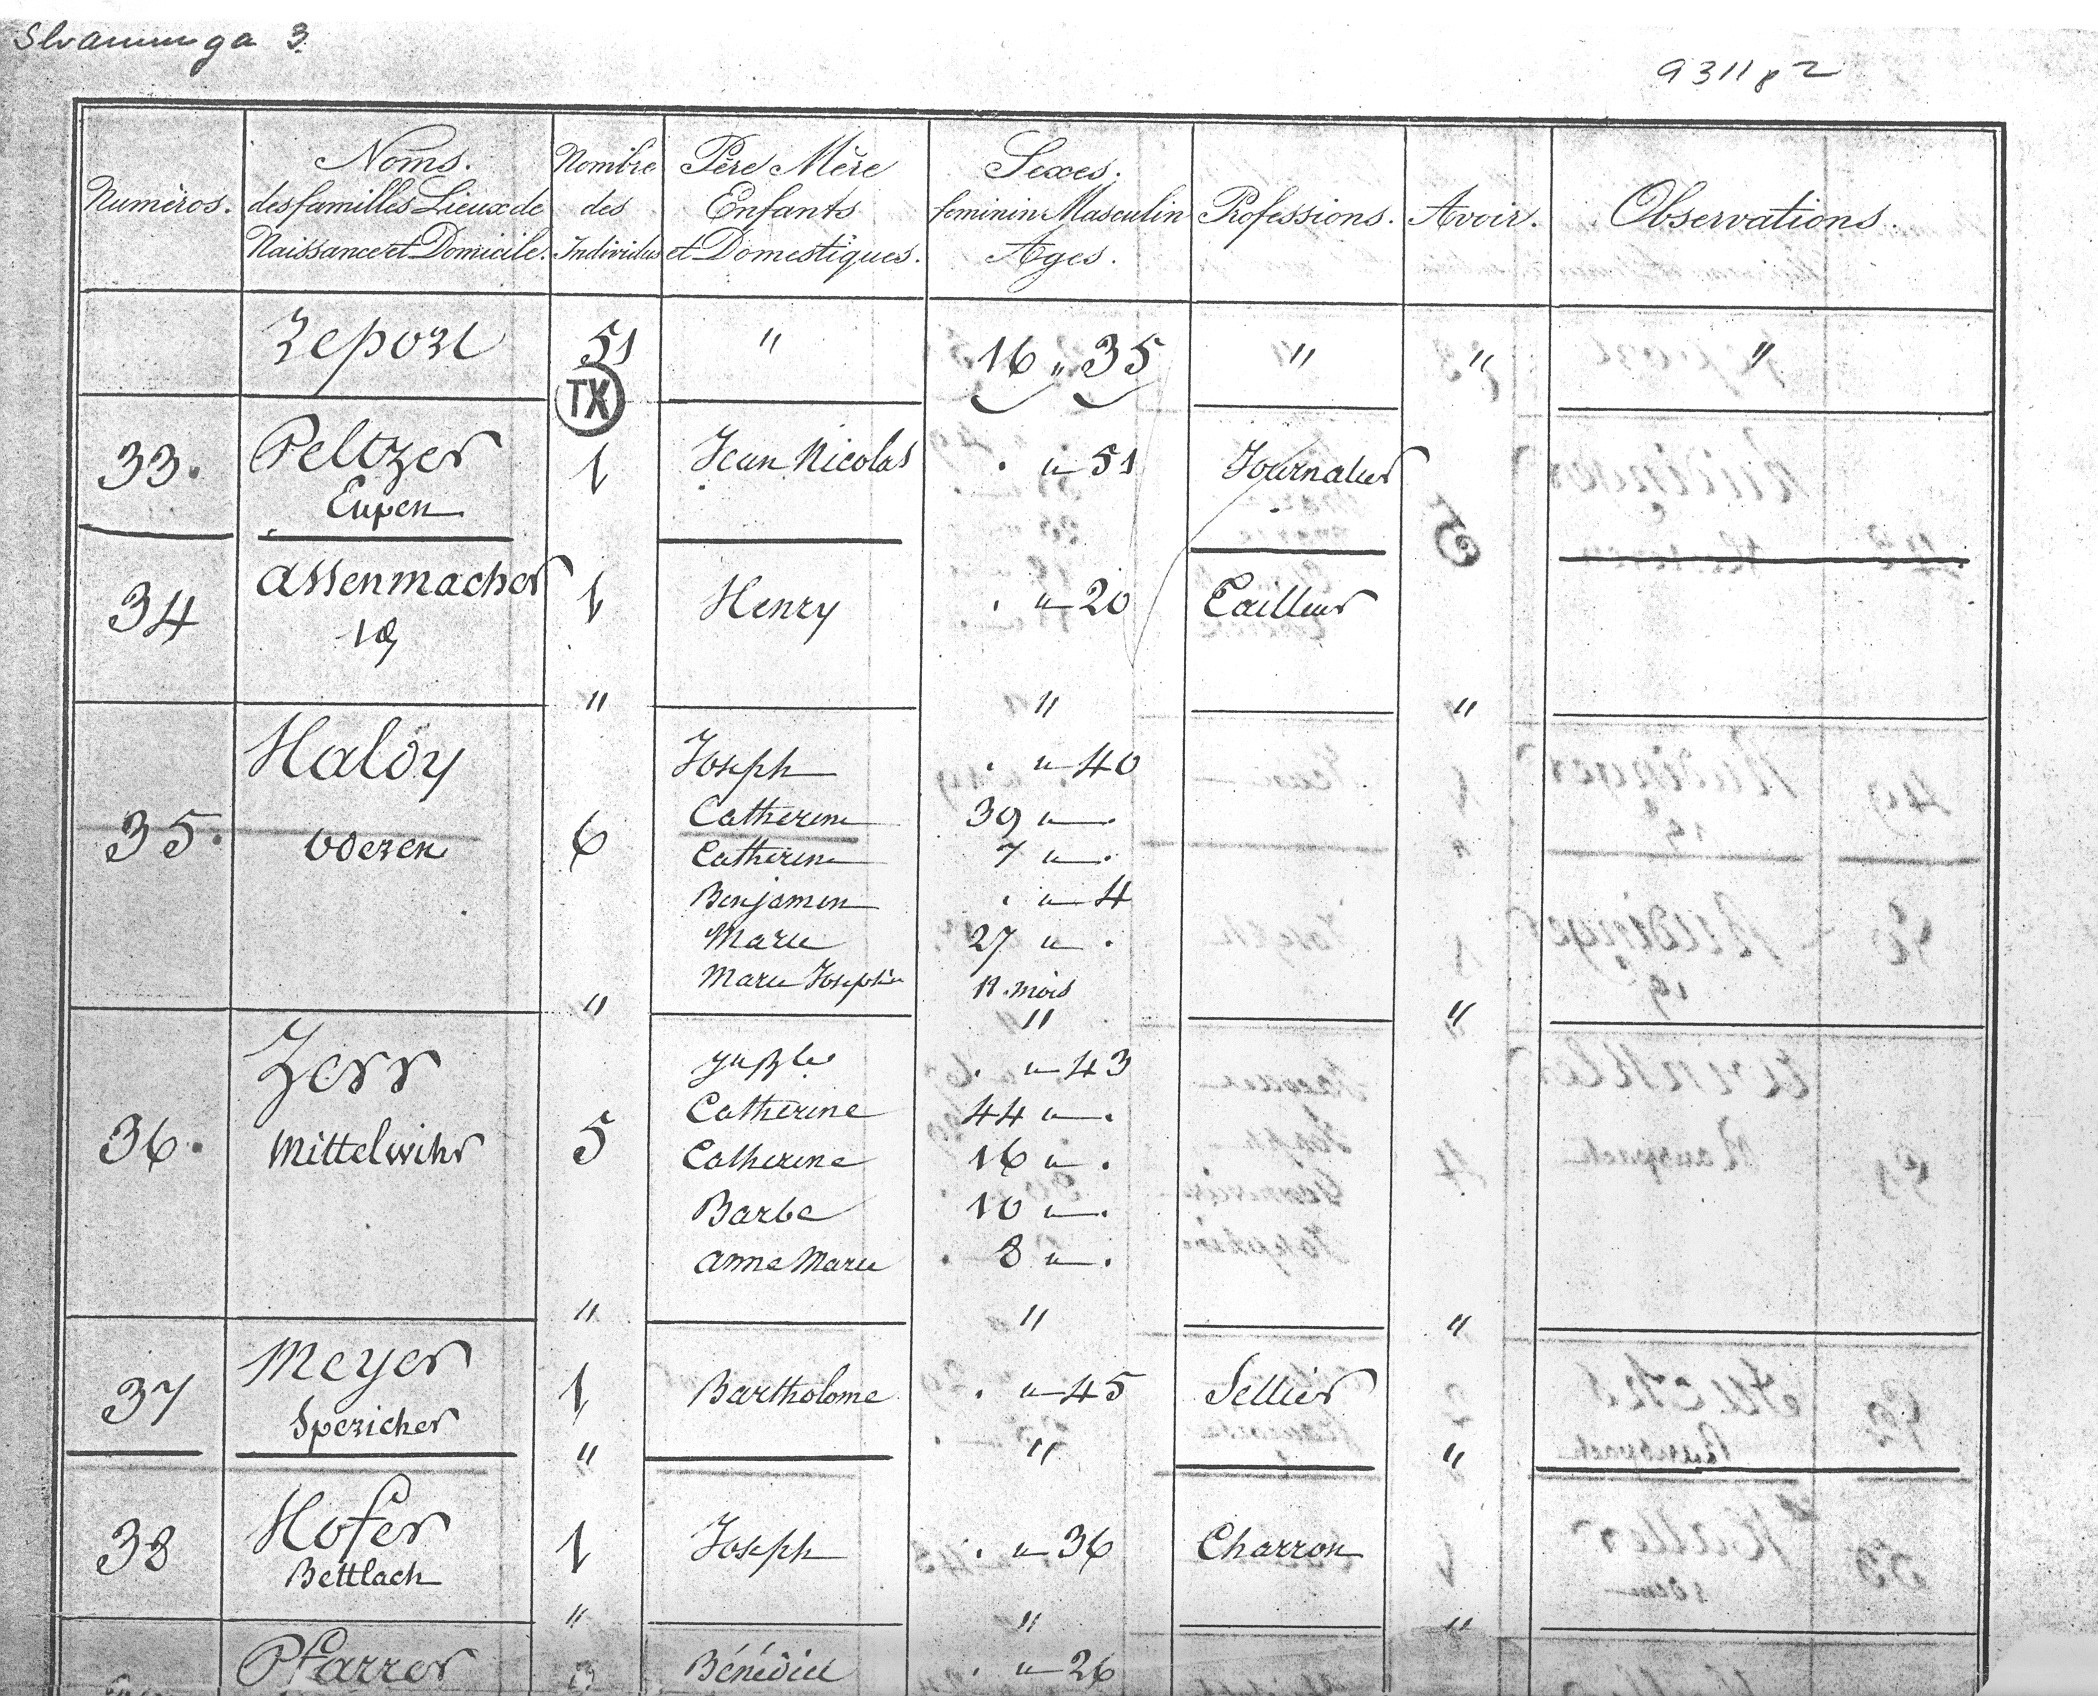 9311 82
Numéros.
Noms.
des familles Lieux de
Naissance et Domicile.
Nombre
des
Individus
Père Mère
Enfants
et Domestiques.
Sexes.
feminin Masculin
Ages.
Professions.
Avoir.
Observations.
Report 51 " 16 " 35 " " "
TX
33. Peltzer 1 Jean Nicolas . " 51 Journalier
Eupen
34 Assenmacher 1 Henry . " 20 Tailleur
id
" " "
Haloy Joseph . " 40
35. 6 Catherine 39 " .
Catherine 7 " .
Benjamin . " 4
Marie 27 " .
Marie Joseph 11 mois
" " "
Zerr . " 43
Catherine 44 " .
36. Mittelwihr 5 Catherine 16 " .
Barbe 10 " .
Anne Marie 8 " .
" " "
37 Meyer 1 Bartholome . " 45 Sellier
Spezicher
" " "
38 Hofer 1 Joseph . " 36 Charron
Bettlach
" " "
Pfarrer 3 Bénédict . " 26